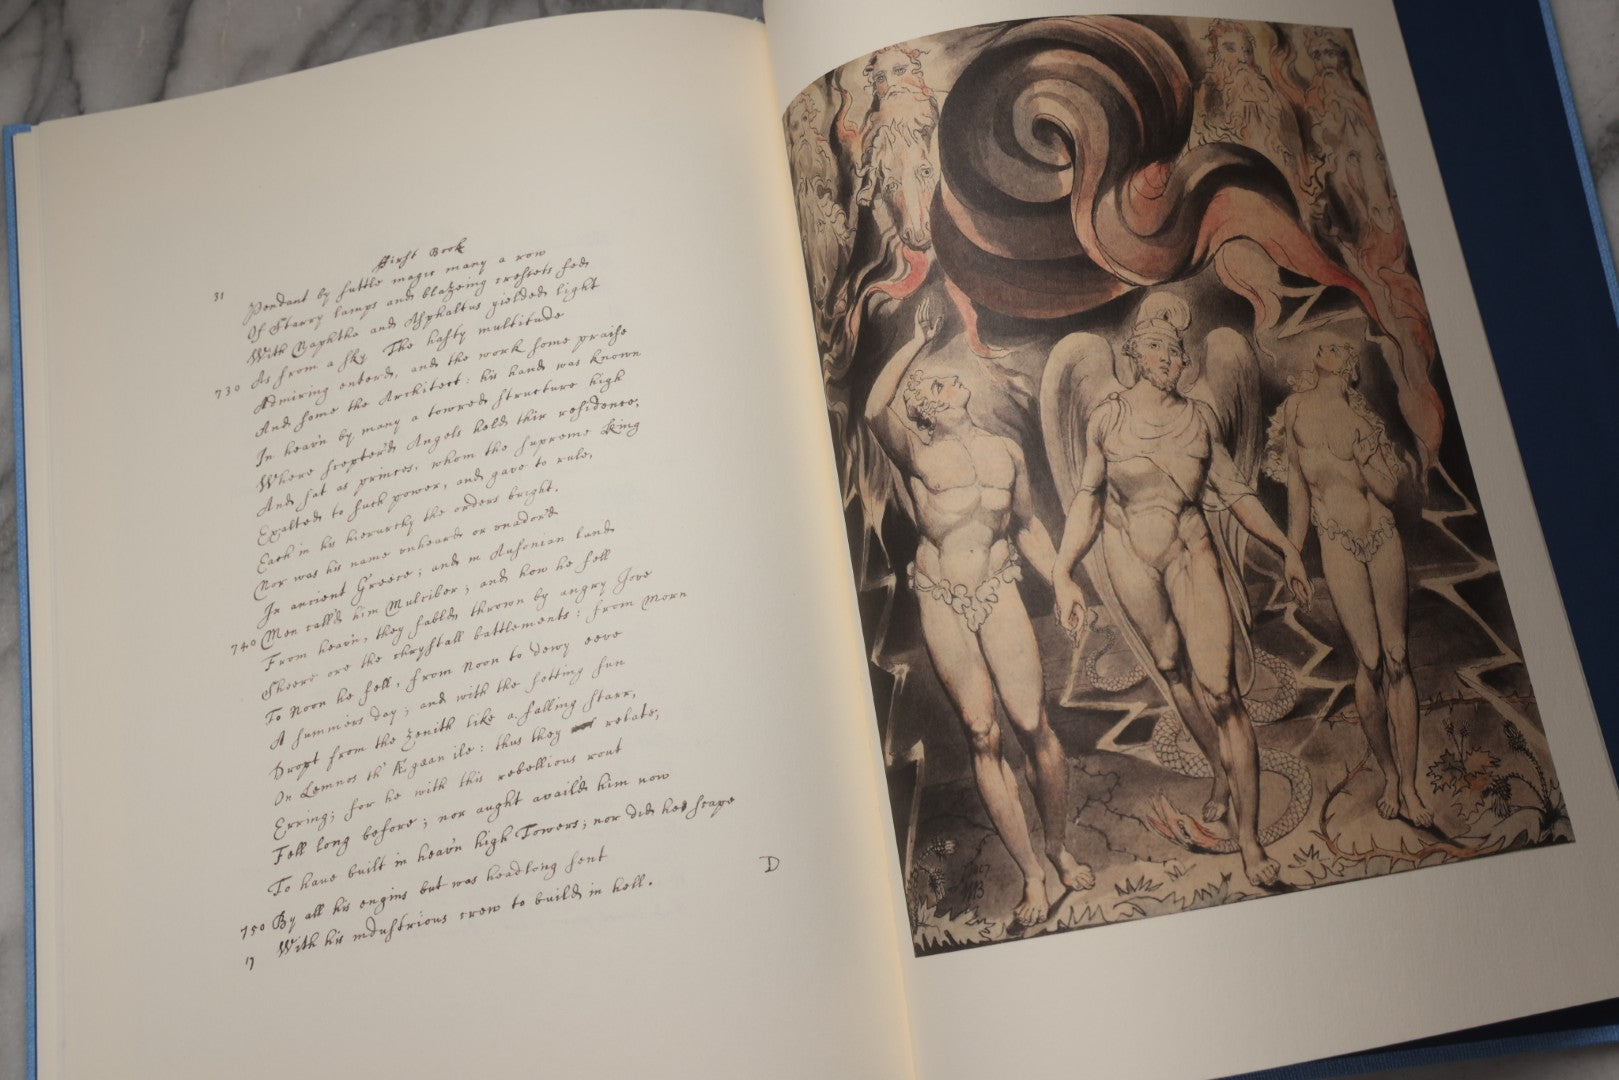 First Book
31 Pendant by suttle magic many a row
Of Starry lamps and blazeing cressets fed
With Naphtha and Asphaltus yeilded light
As from a sky The hasty multitude
730 Admiring enterd, and the work some praise
And some the Architect: his hand was known
In heav'n by many a towred structure high
Where scepterd Angels held thir residence,
And sat as princes, whom the supreme King
Exalted to such power, and gave to rule,
Each in his hierarchy the orders bright.
Nor was his name unheard or unador'd
In ancient Greece; and in Ausonian land
740 Men call'd him Mulciber; and how he fell
From heav'n, they fabl'd thrown by angry Jove
Sheere ore the chrystall battlements: from Morn
To Noon he fell, from Noon to dewy eeve
A summers day; and with the setting sun
Dropt from the zenith like a falling starr,
On Lemnos th' Ægean ile: thus they relate,
Erring; for he with this rebellious rout
Fell long before; nor aught availd him now
To have built in heav'n high Towers; nor did he scape
750 By all his engins but was headlong sent
17 With his industrious crew to build in hell.
D
1807
WB